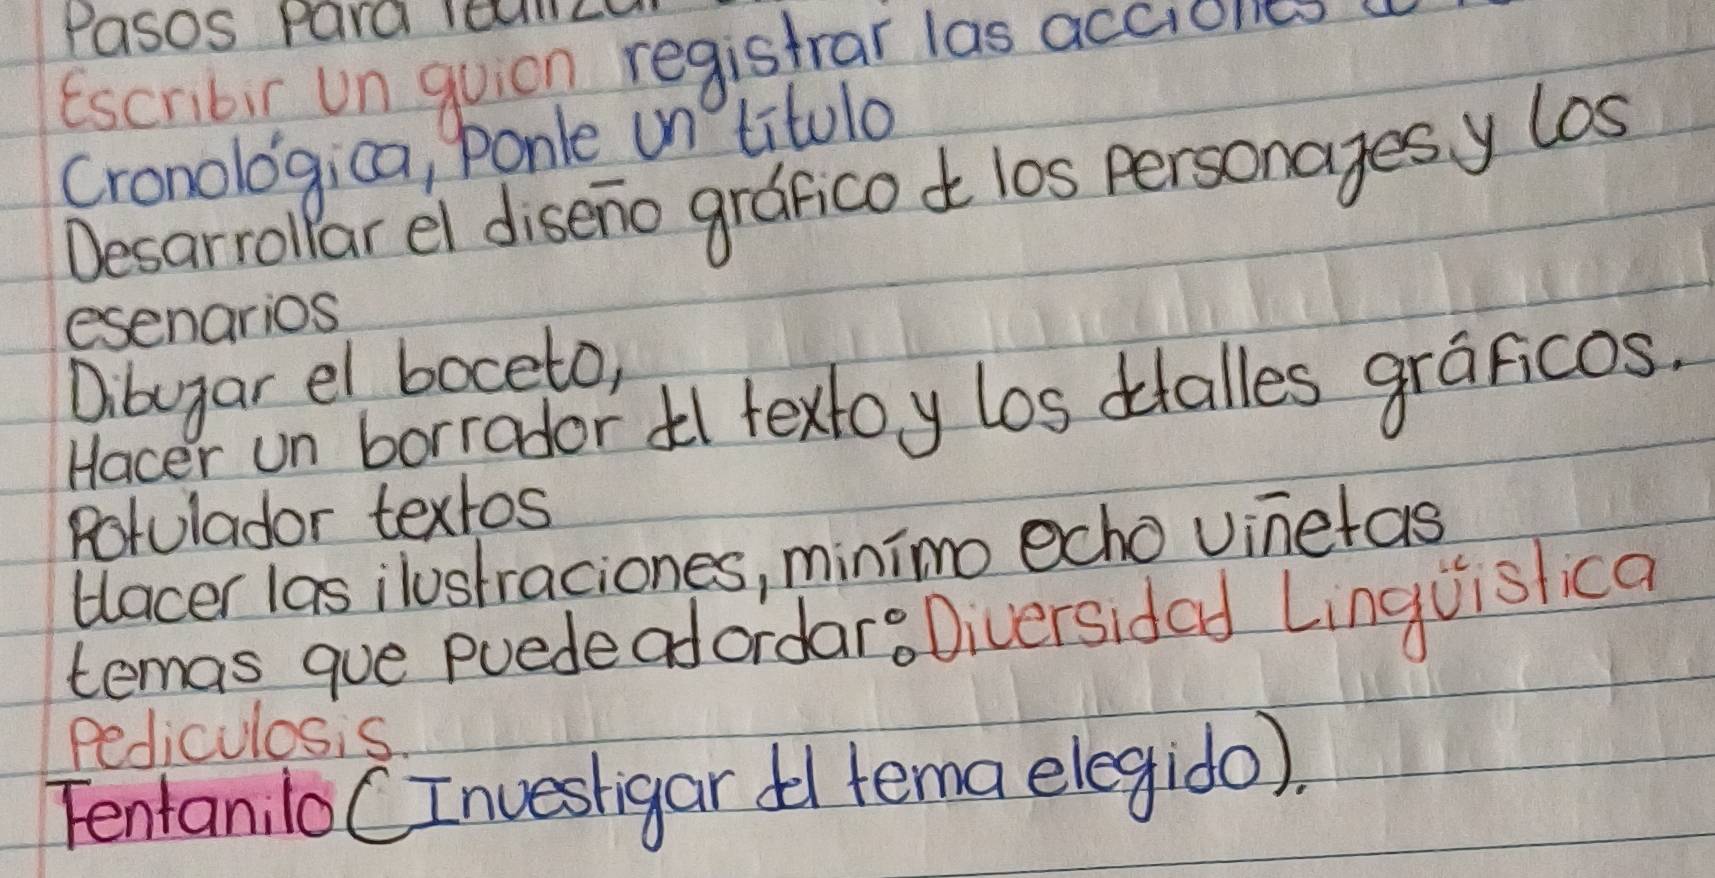 Pasos para
Escribir un guion registrar las acciones
Cronológica, ponle un titulo
Desarrollar el diseño gráfico de los personages y los
esenarios
Dibujar el boceto,
Hacer un borrador del texto y los detalles gráficos.
Rotulador textos
Hacer las ilustraciones, minimo ocho viñetas
temas que puede adordar: Diversidad Lingüistica
Pediculosis.
Fentanilo (Investigar del tema elegido).